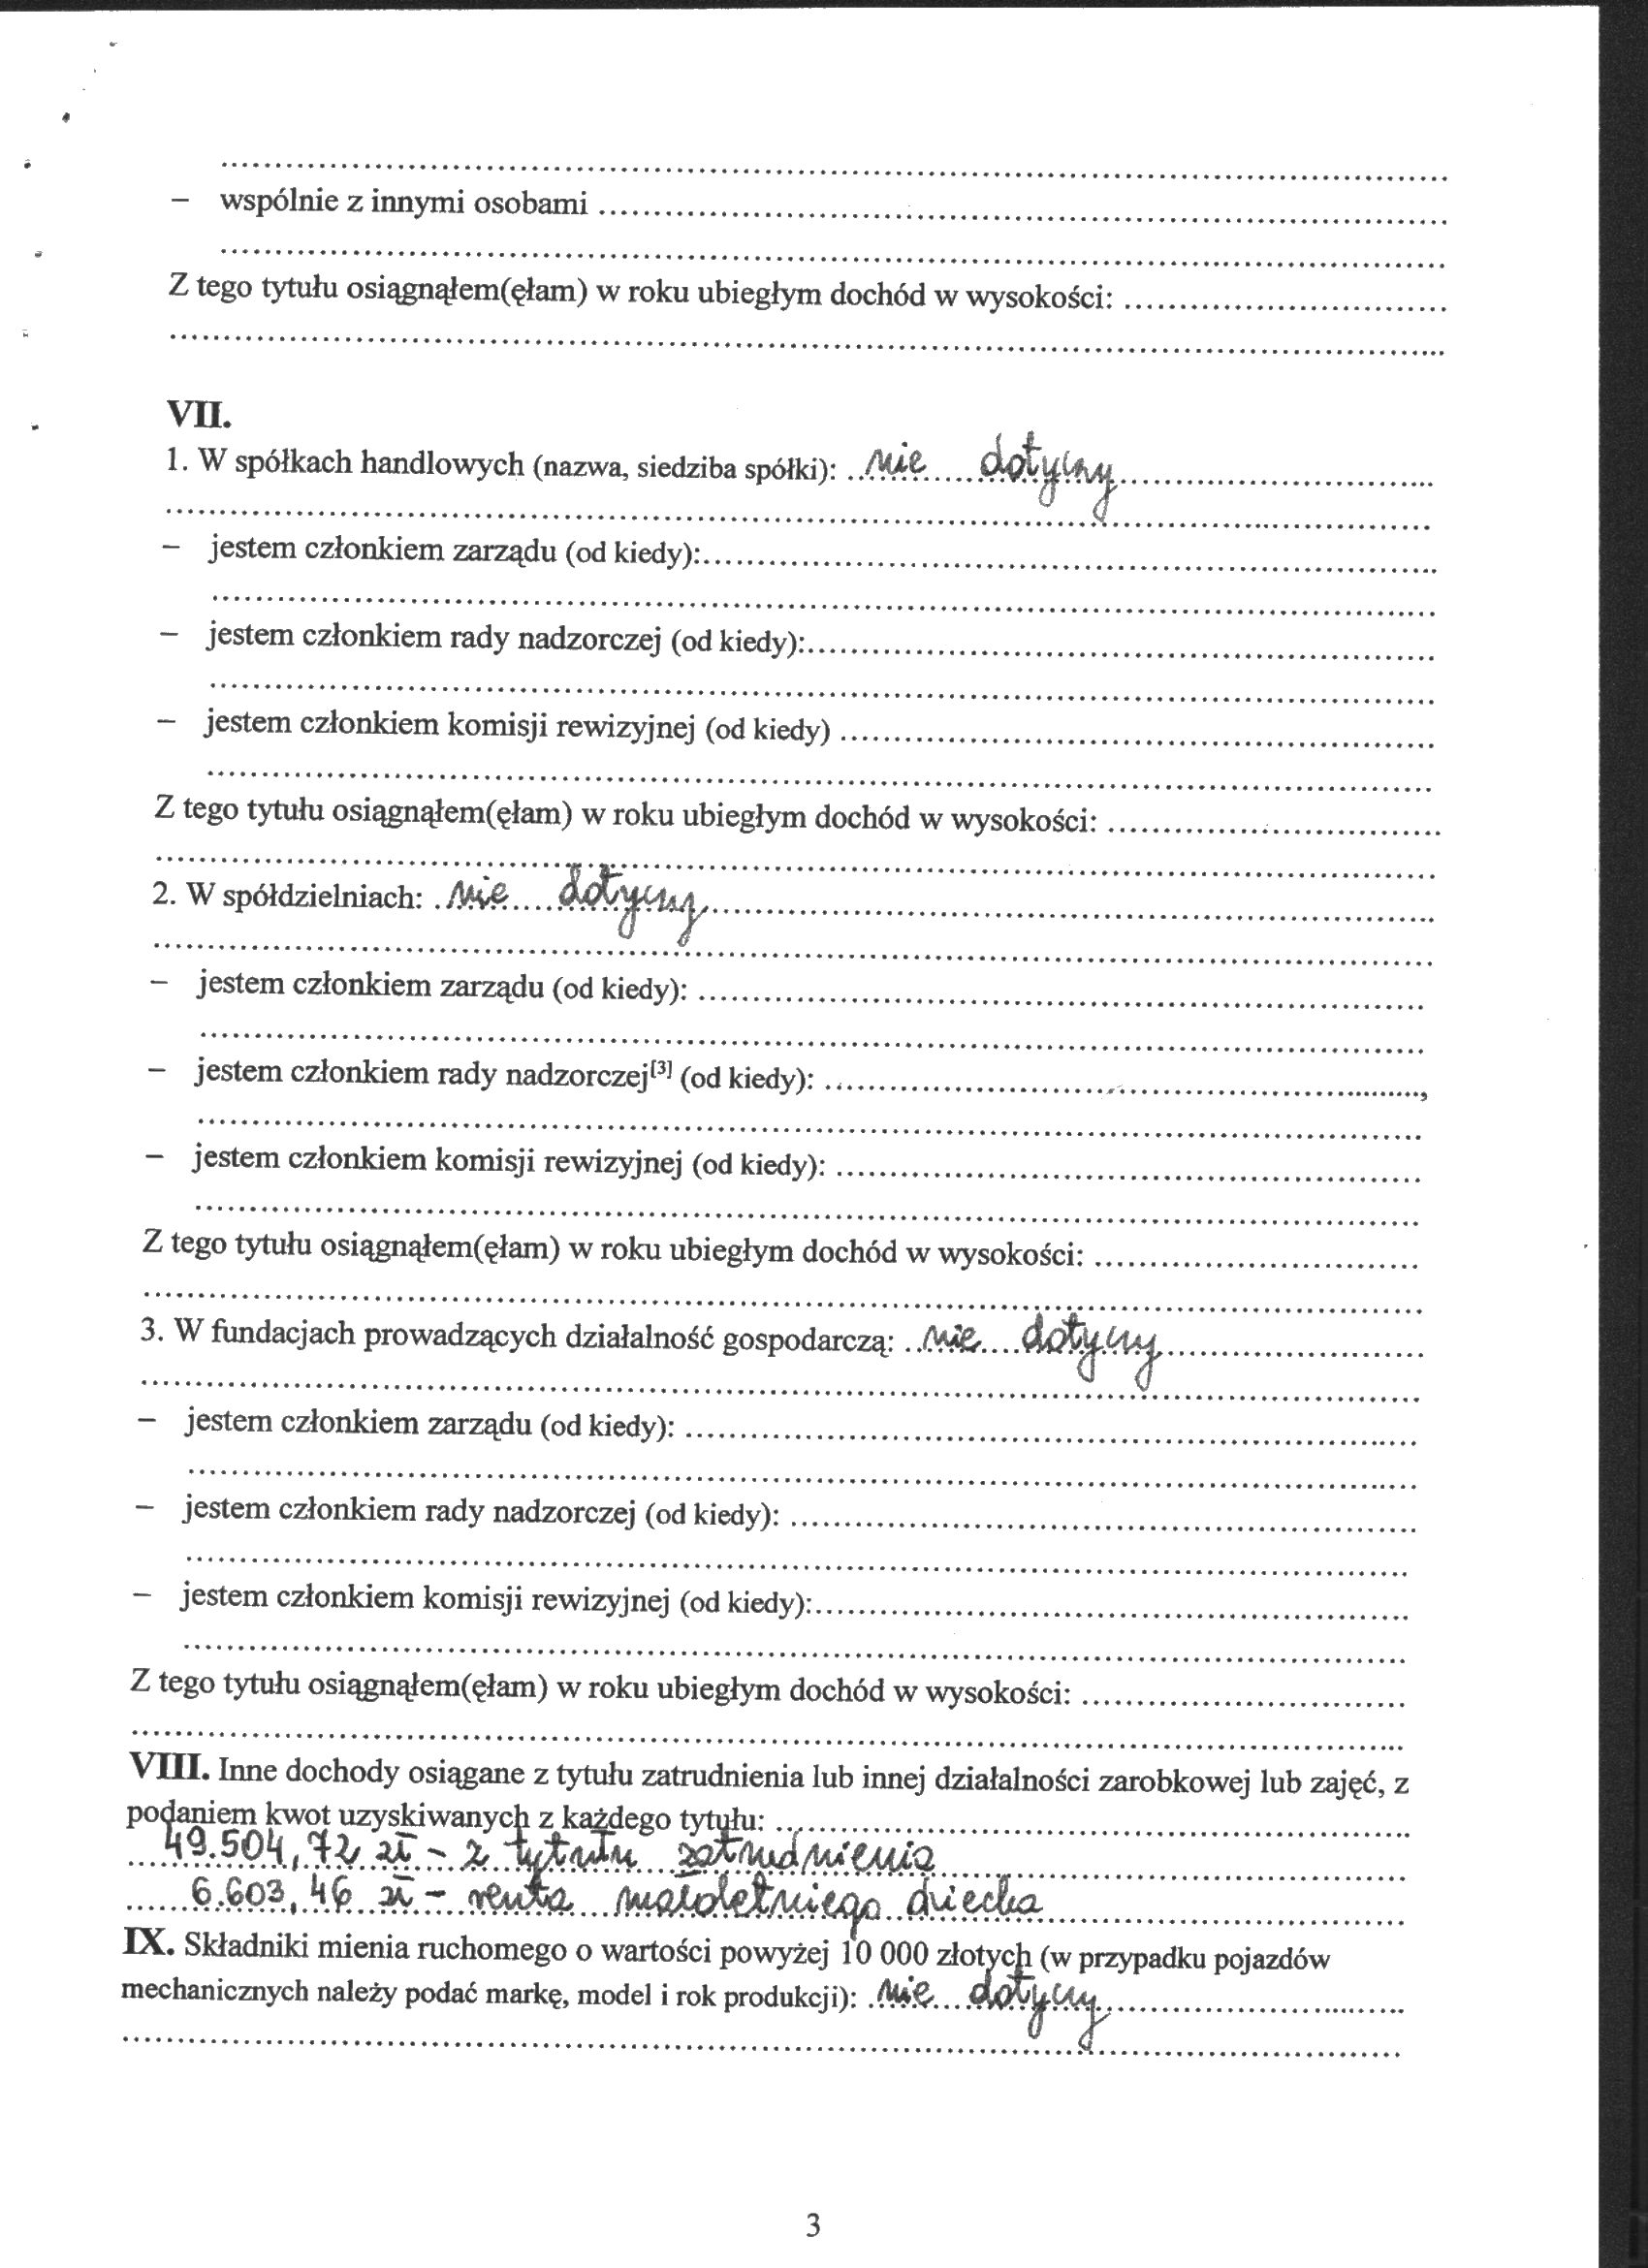 ................................................................
– wspólnie z innymi osobami ................................................................
................................................................
Z tego tytułu osiągnąłem(ęłam) w roku ubiegłym dochód w wysokości: ................................
................................................................
VII.
1. W spółkach handlowych (nazwa, siedziba spółki): ..nie dotyczy................................
................................................................
– jestem członkiem zarządu (od kiedy):................................................................
................................................................
– jestem członkiem rady nadzorczej (od kiedy):................................................................
................................................................
– jestem członkiem komisji rewizyjnej (od kiedy) ................................................................
................................................................
Z tego tytułu osiągnąłem(ęłam) w roku ubiegłym dochód w wysokości: ................................
................................................................
2. W spółdzielniach: .nie dotyczy................................................................
................................................................
– jestem członkiem zarządu (od kiedy): ................................................................
................................................................
– jestem członkiem rady nadzorczej[3] (od kiedy): ................................................................,
................................................................
– jestem członkiem komisji rewizyjnej (od kiedy): ................................................................
................................................................
Z tego tytułu osiągnąłem(ęłam) w roku ubiegłym dochód w wysokości: ................................
................................................................
3. W fundacjach prowadzących działalność gospodarczą: ..nie dotyczy................................
................................................................
– jestem członkiem zarządu (od kiedy): ................................................................
................................................................
– jestem członkiem rady nadzorczej (od kiedy): ................................................................
................................................................
– jestem członkiem komisji rewizyjnej (od kiedy):................................................................
................................................................
Z tego tytułu osiągnąłem(ęłam) w roku ubiegłym dochód w wysokości: ................................
................................................................
VIII. Inne dochody osiągane z tytułu zatrudnienia lub innej działalności zarobkowej lub zajęć, z
podaniem kwot uzyskiwanych z każdego tytułu: ................................................................
49.504,72 zł – z tytułu zatrudnienia
6.603,46 zł – renta małoletniego dziecka
IX. Składniki mienia ruchomego o wartości powyżej 10 000 złotych (w przypadku pojazdów
mechanicznych należy podać markę, model i rok produkcji): .nie dotyczy................................
................................................................
3